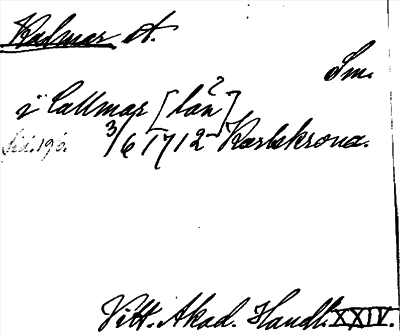 Kalmar A.
Sm.
i Callmar [län?]
sid. 196. 3/6 1712 Karlskrona.
Vitt. Akad. Handl. XXIV.